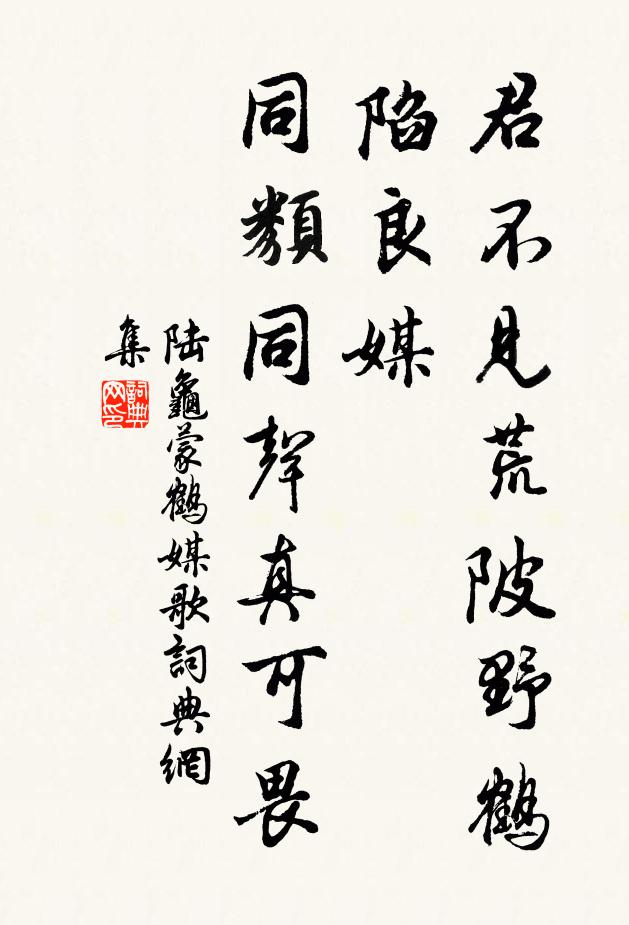 君不見荒陂野鶴
陷良媒
同類同聲真可畏
陸龜蒙鶴媒歌詞典網
集
詞典
网印